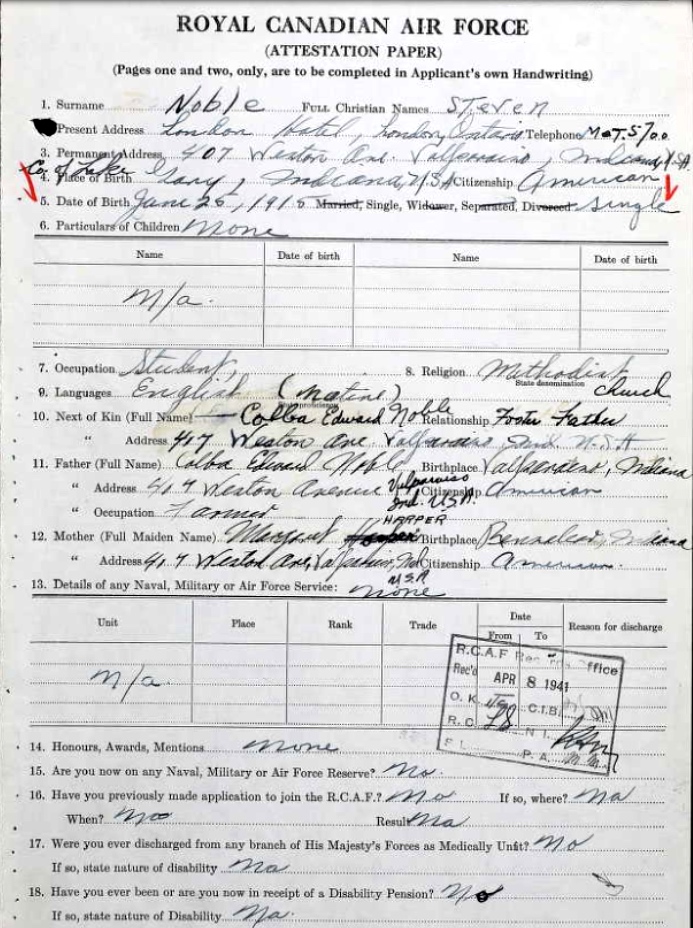 ROYAL CANADIAN AIR FORCE
(ATTESTATION PAPER)
(Pages one and two, only, are to be completed in Applicant's own Handwriting)
1. Surname Noble FULL Christian Names Steven
Present Address London Hotel, London, Ontario Telephone MET. 5700
3. Permanent Address 407 Weston Ave. Valparaiso, Indiana, U.S.A.
Co. of Lake
4. Place of Birth Gary, Indiana, U.S.A. Citizenship American
5. Date of Birth June 26, 1916 Married, Single, Widower, Separated, Divorced Single
6. Particulars of Children None
Name Date of birth Name Date of birth
N/a.
7. Occupation Student, 8. Religion Methodist church
State denomination
9. Languages English (Native)
10. Next of Kin (Full Name) Colba Edward Noble Relationship Foster Father
" Address 417 Weston Ave. Valparaiso, Ind. U.S.A
11. Father (Full Name) Colba Edward Noble, Birthplace Valparaiso, Indiana
" Address 417 Weston Avenue Valparaiso Ind. U.S.A. Citizenship American
" Occupation Farmer
HARPER
12. Mother (Full Maiden Name) Margaret Birthplace Indiana
" Address 417 Weston Ave, Valparaiso, Ind Citizenship American.
U.S.A
13. Details of any Naval, Military or Air Force Service: None
Unit Place Rank Trade Date From To Reason for discharge
N/a.
R.C.A.F. Records Office
Rec'd APR 8 1941
O. K. C.I.B.
R. C. LS N. I.
F. I. P. A.
14. Honours, Awards, Mentions None
15. Are you now on any Naval, Military or Air Force Reserve? No.
16. Have you previously made application to join the R.C.A.F.? No If so, where? Na
When? No Result Na
17. Were you ever discharged from any branch of His Majesty's Forces as Medically Unfit? No
If so, state nature of disability Na
18. Have you ever been or are you now in receipt of a Disability Pension? No
If so, state nature of Disability. Na.